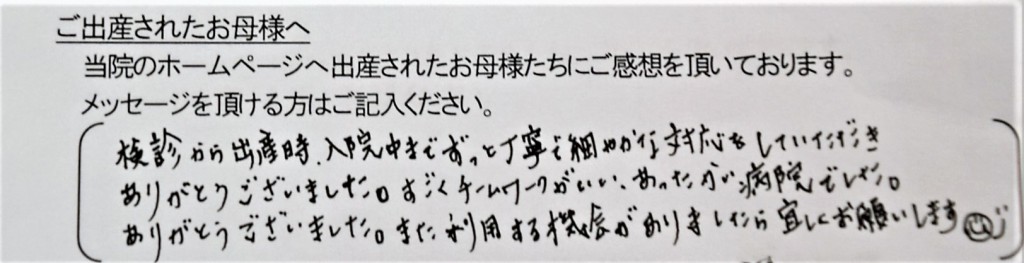 ご出産されたお母様へ
当院のホームページへ出産されたお母様たちにご感想を頂いております。
メッセージを頂ける方はご記入ください。
検診から出産時、入院中までずっと丁寧で細やかな対応をしていただき
ありがとうございました。すごくチームワークがいい、あったかい病院でした。
ありがとうございました。また利用する機会がありましたら宜しくお願いします